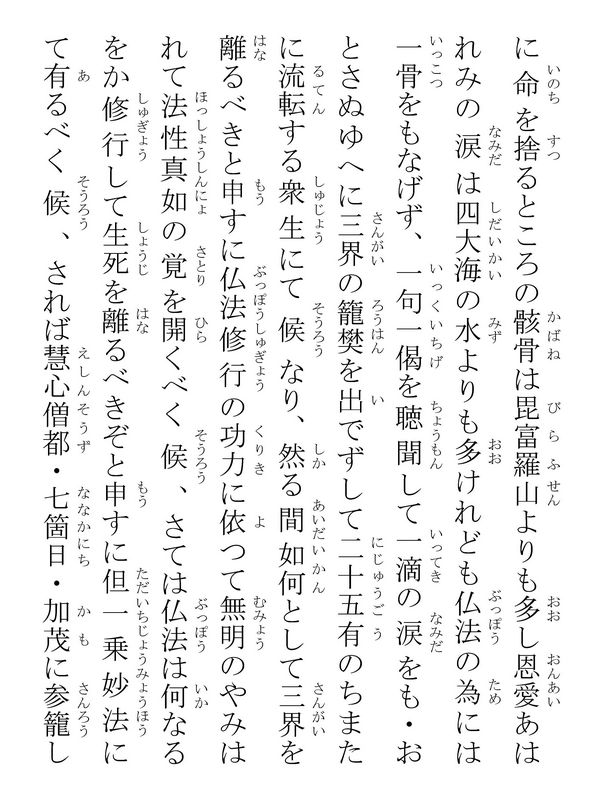 に命を捨るところの骸骨は毘富羅山よりも多し恩愛あは
れみの涙は四大海の水よりも多けれども仏法の為には
一骨をもなげず、一句一偈を聴聞して一滴の涙をも・お
とさぬゆへに三界の籠樊を出でずして二十五有のちまた
に流転する衆生にて候なり、然る間如何として三界を
離るべきと申すに仏法修行の功力に依つて無明のやみは
れて法性真如の覚を開くべく候、さては仏法は何なる
をか修行して生死を離るべきぞと申すに但一乗妙法に
て有るべく候、されば慧心僧都・七箇日・加茂に参籠し